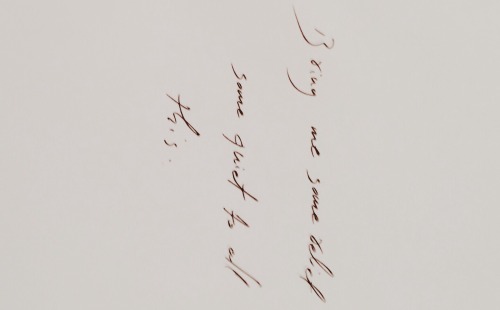 Bring me some relief
some quiet to all
this.